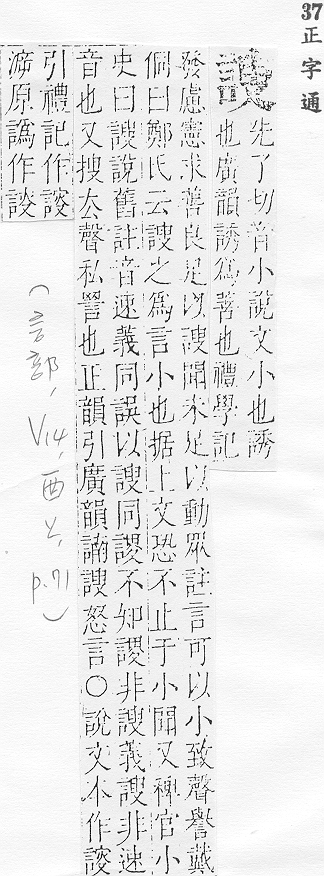 37 正字通
謏
先了切音小說文小也誘
也廣韻誘爲善也禮學記
發慮憲求善良足以謏聞未足以動眾註言可以小致聲譽戴
侗曰鄭氏云謏之爲言小也据上文恐不止于小聞又稗官小
史曰謏說舊註音速義同誤以謏同謖不知謖非謏義謏非速
音也又搜厺聲私詈也正韻引廣韻謏怒言○說文本作
引禮記作
原譌作
(言部, V14, 酉上, p.71)